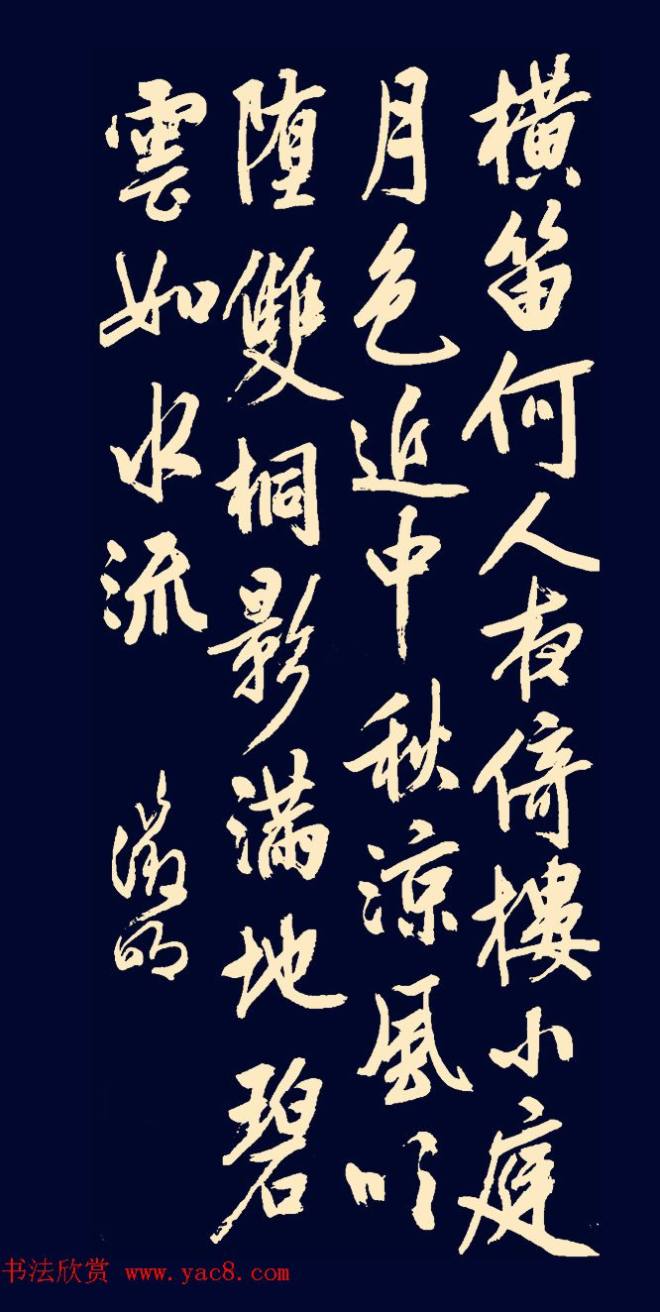 横笛何人夜倚樓小庭
月色近中秋凉風吹
堕雙桐影滿地碧
雲如水流
徵明
书法欣赏 www.yac8.com